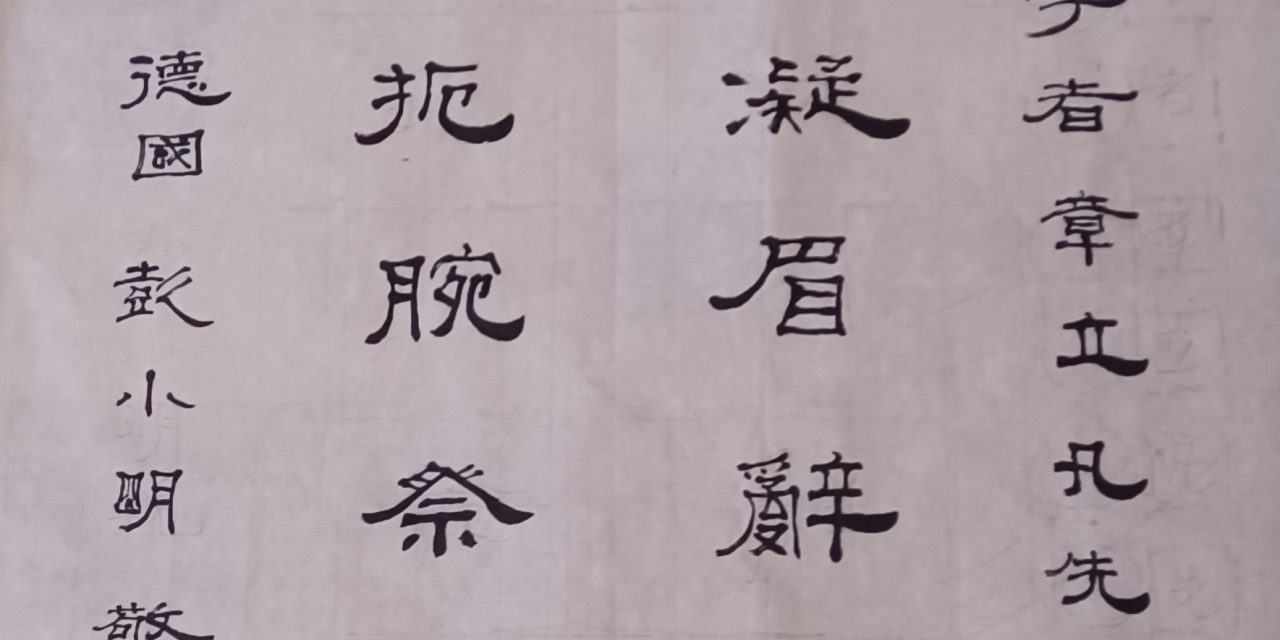 者章立凡先
凝眉辭
扼腕祭
德國彭小明敬